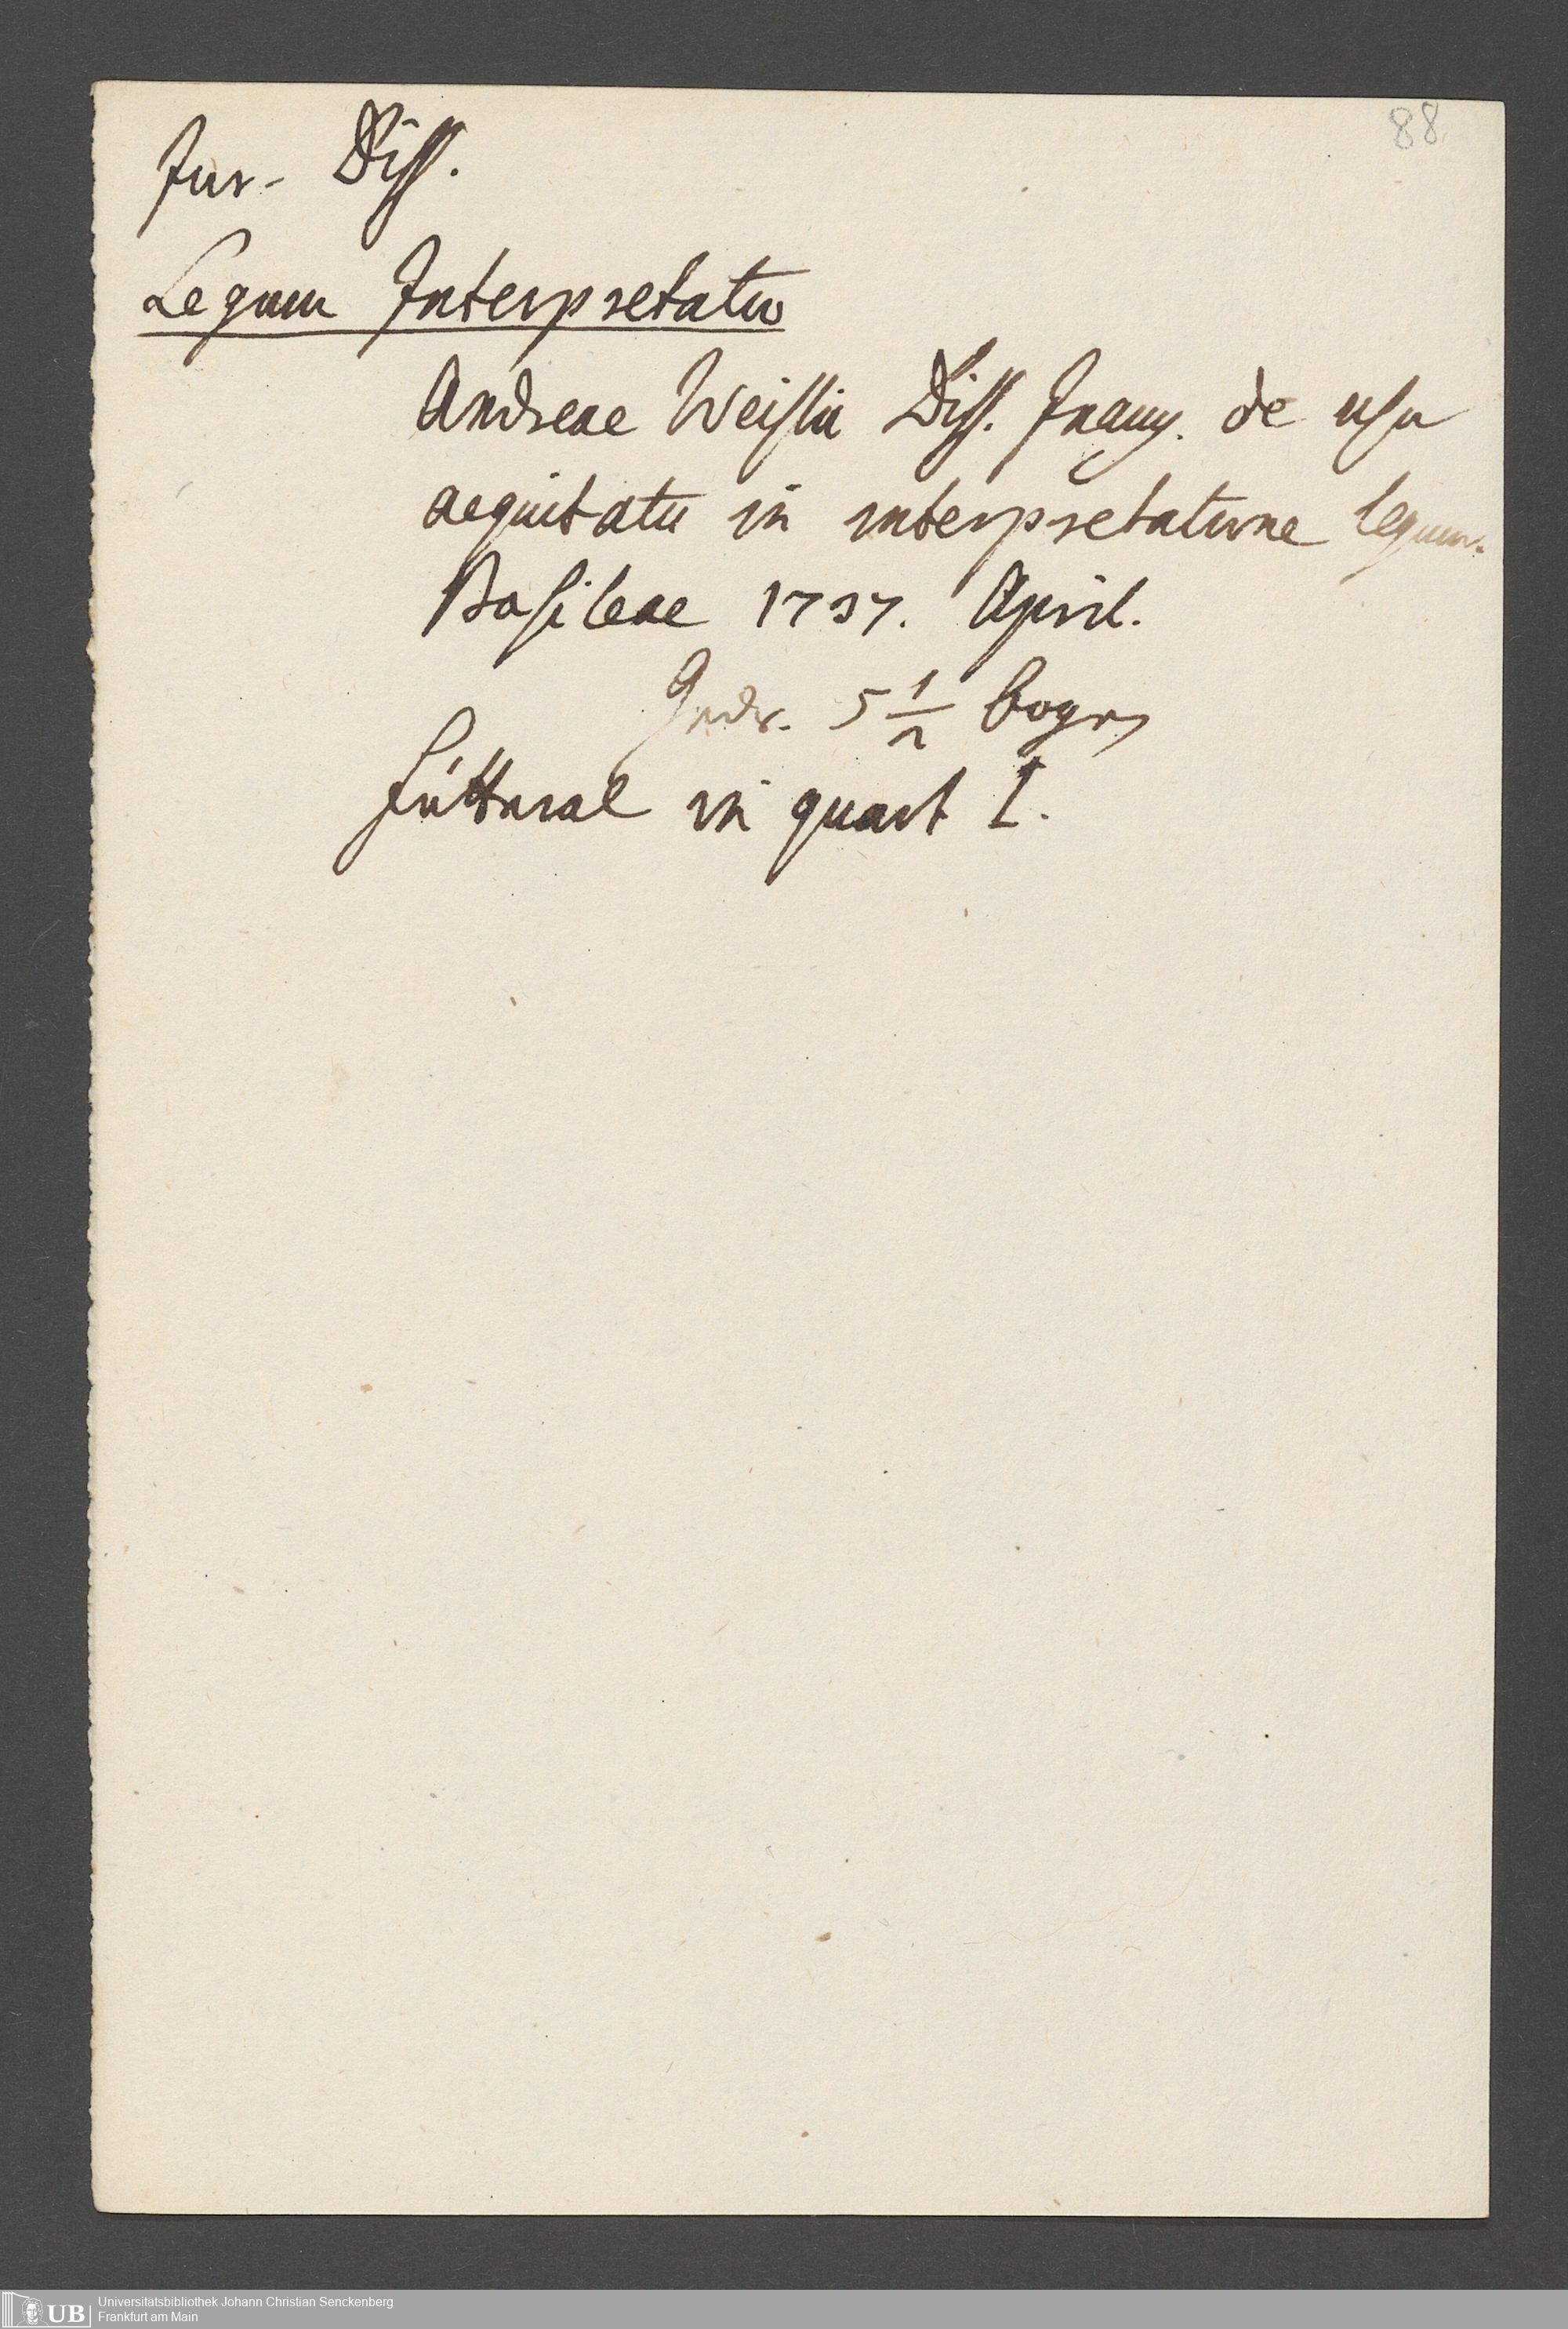 88
Jur. Diss.
Legum Interpretatio
Andreae Weissii Diss. Inaug. de usu
aequitatis in interpretatione legum.
Basileae 1737. April.
Gedr. 5 1/2 bogen
Futteral in quart I.
UB Universitätsbibliothek Johann Christian Senckenberg
Frankfurt am Main